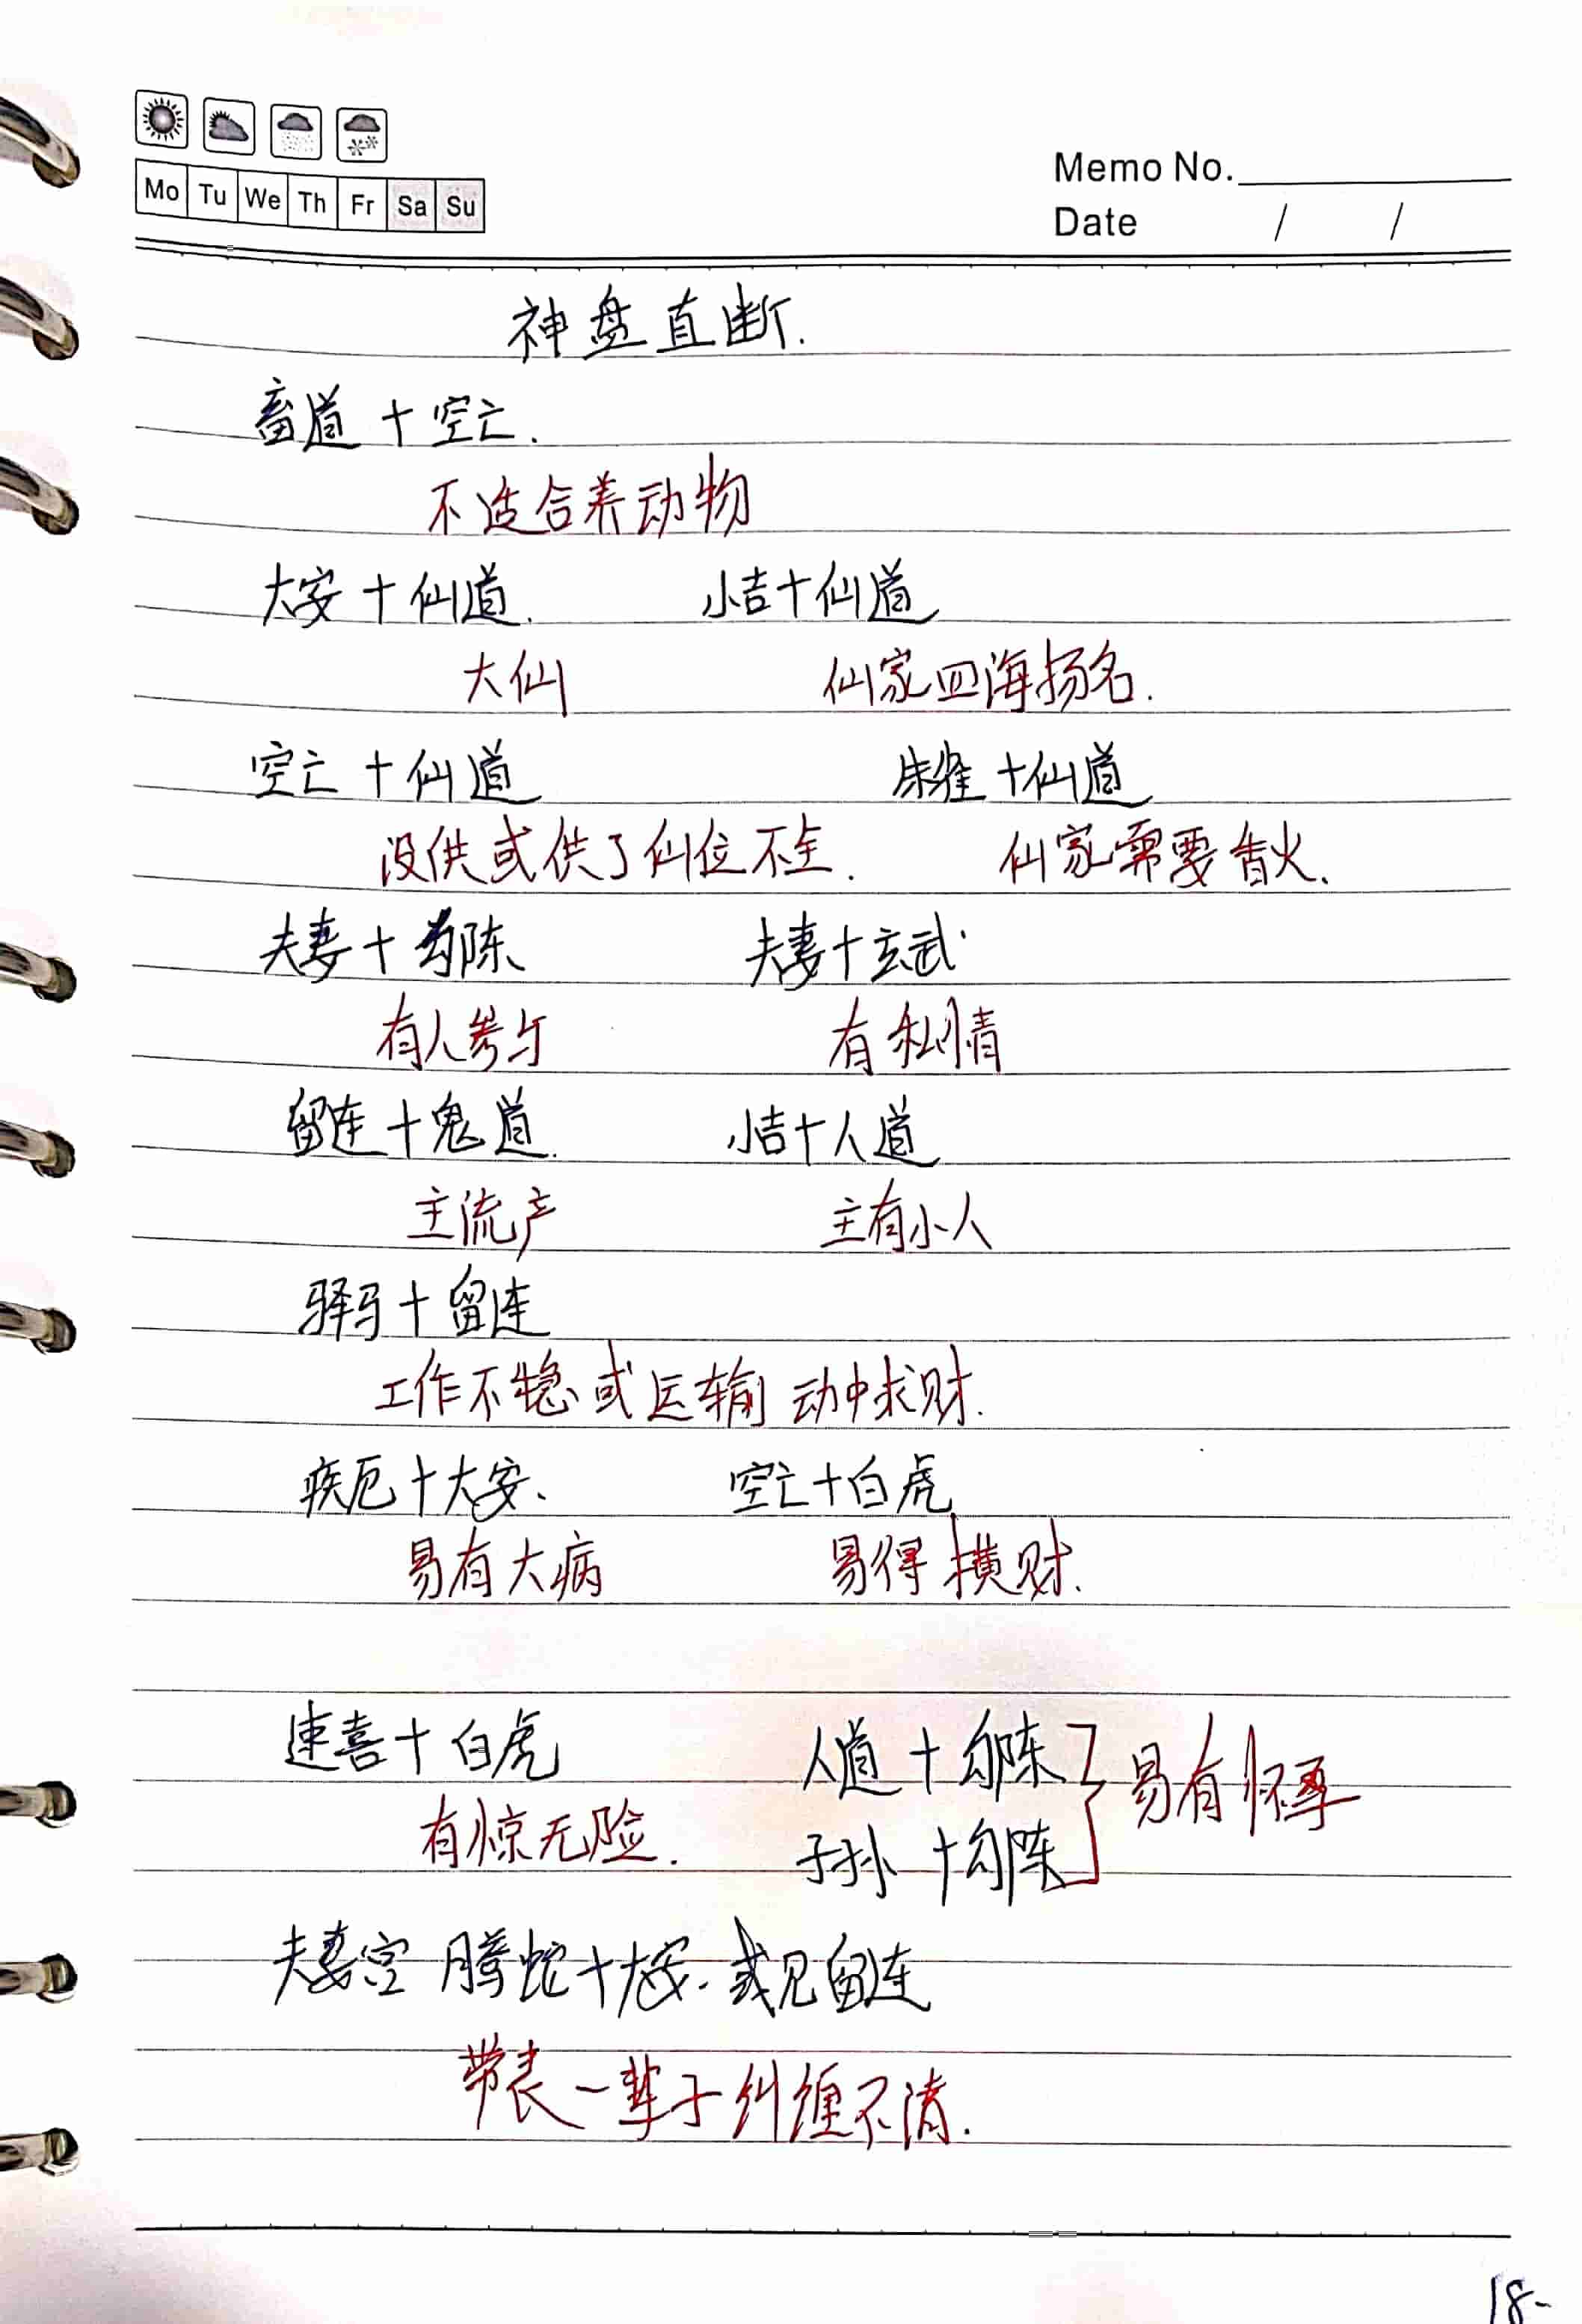 Mo Tu We Th Fr Sa Su
Memo No.
Date / /
神盘直断.
畜道十空亡.
不适合养动物
大安十仙道. 小吉十仙道
大仙 仙家四海扬名.
空亡十仙道 朱雀十仙道
没供或供了仙位不全. 仙家需要香火.
夫妻十勾陈、 夫妻十玄武
有人参与 有私情
留连十鬼道. 小吉十人道
主流产 主有小人
驿马十留连
工作不稳或运输 动中求财.
疾厄十大安、 空亡十白虎
易有大病 易得横财.
速喜十白虎 人道十勾陈
有惊无险. 子孙十勾陈 易有怀孕
夫妻宫 腾蛇十大安.或见留连
带表一辈子纠缠不清.
18-